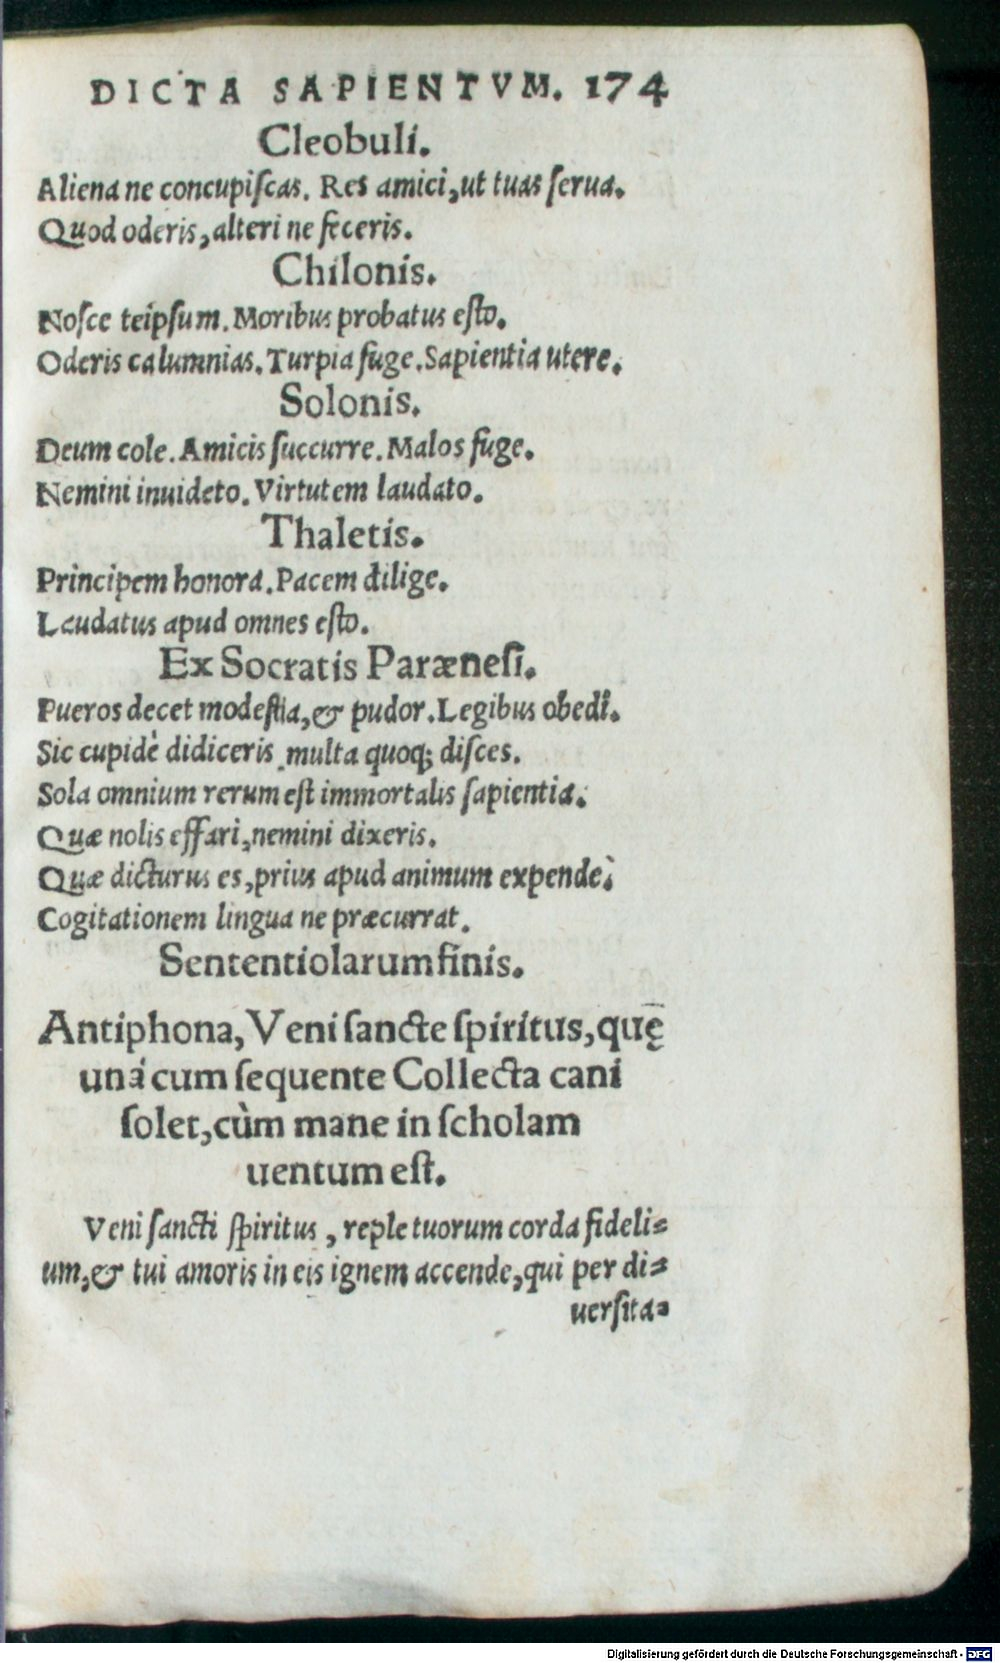 DICTA SAPIENTVM. 174
Cleobuli.
Aliena ne concupiſcas. Res amici, ut tuas ſerua.
Quod oderis, alteri ne feceris.
Chilonis.
Noſce teipſum. Moribus probatus eſto.
Oderis calumnias. Turpia fuge. Sapientia utere.
Solonis.
Deum cole. Amicis ſuccurre. Malos fuge.
Nemini inuideto. Virtutem laudato.
Thaletis.
Principem honora. Pacem dilige.
Laudatus apud omnes eſto.
Ex Socratis Parænesi.
Pueros decet modeſtia, & pudor. Legibus obedi.
Sic cupidè didiceris multa quoq; diſces.
Sola omnium rerum eſt immortalis ſapientia.
Quæ nolis effari, nemini dixeris.
Quæ dicturus es, prius apud animum expende.
Cogitationem lingua ne præcurrat.
Sententiolarum finis.
Antiphona, Veni ſancte ſpiritus, quę
unà cum ſequente Collecta cani
ſolet, cùm mane in ſcholam
uentum eſt.
Veni ſancti ſpiritus, reple tuorum corda fideli=
um, & tui amoris in eis ignem accende, qui per di=
uerſita=
Digitalisierung gefördert durch die Deutsche Forschungsgemeinschaft - DFG